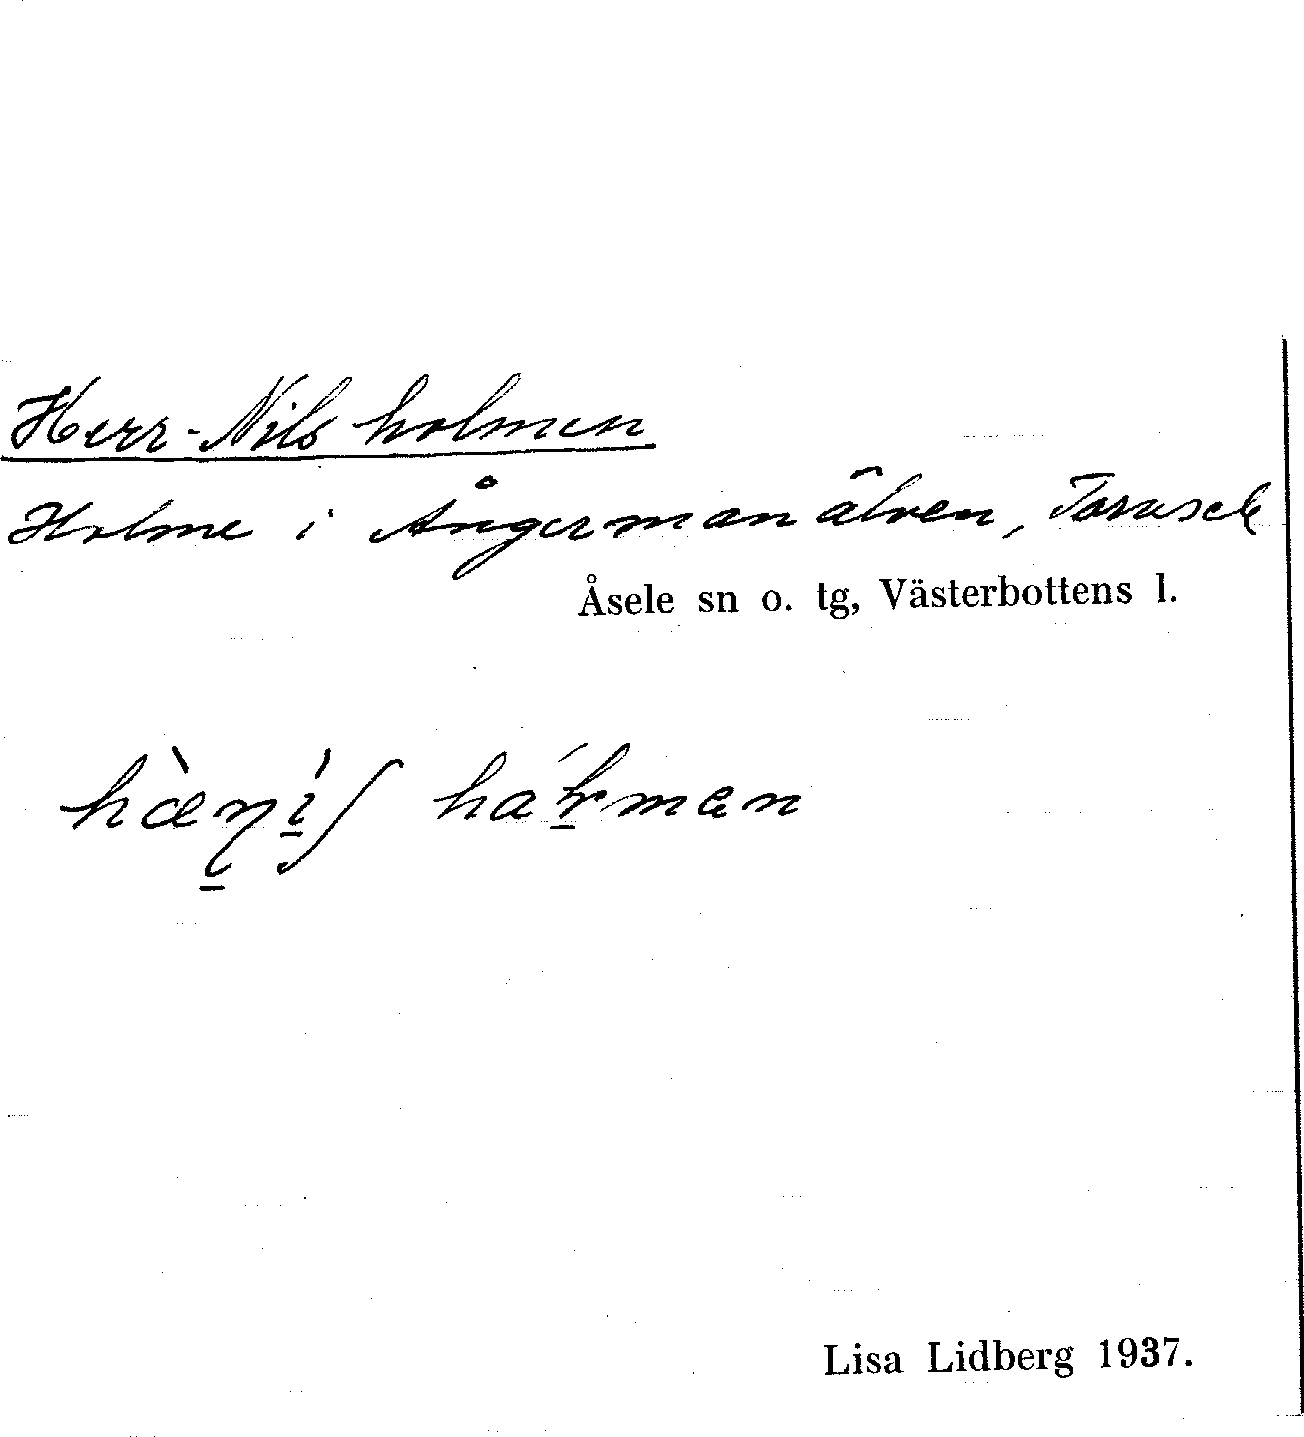 Herr-Nils holmen
Holme i Ångermanälven, Torvsele
Åsele sn o. tg, Västerbottens l.
Lisa Lidberg 1937.